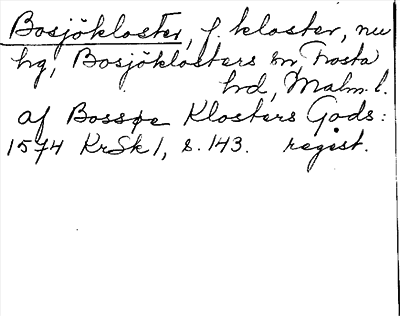 Bosjökloster, f. kloster, nu
hg, Bosjöklosters sn, Frosta
hd, Malm. l.
af Bossøe Klosters Gods:
1574 KrSk 1, s. 143. regist.